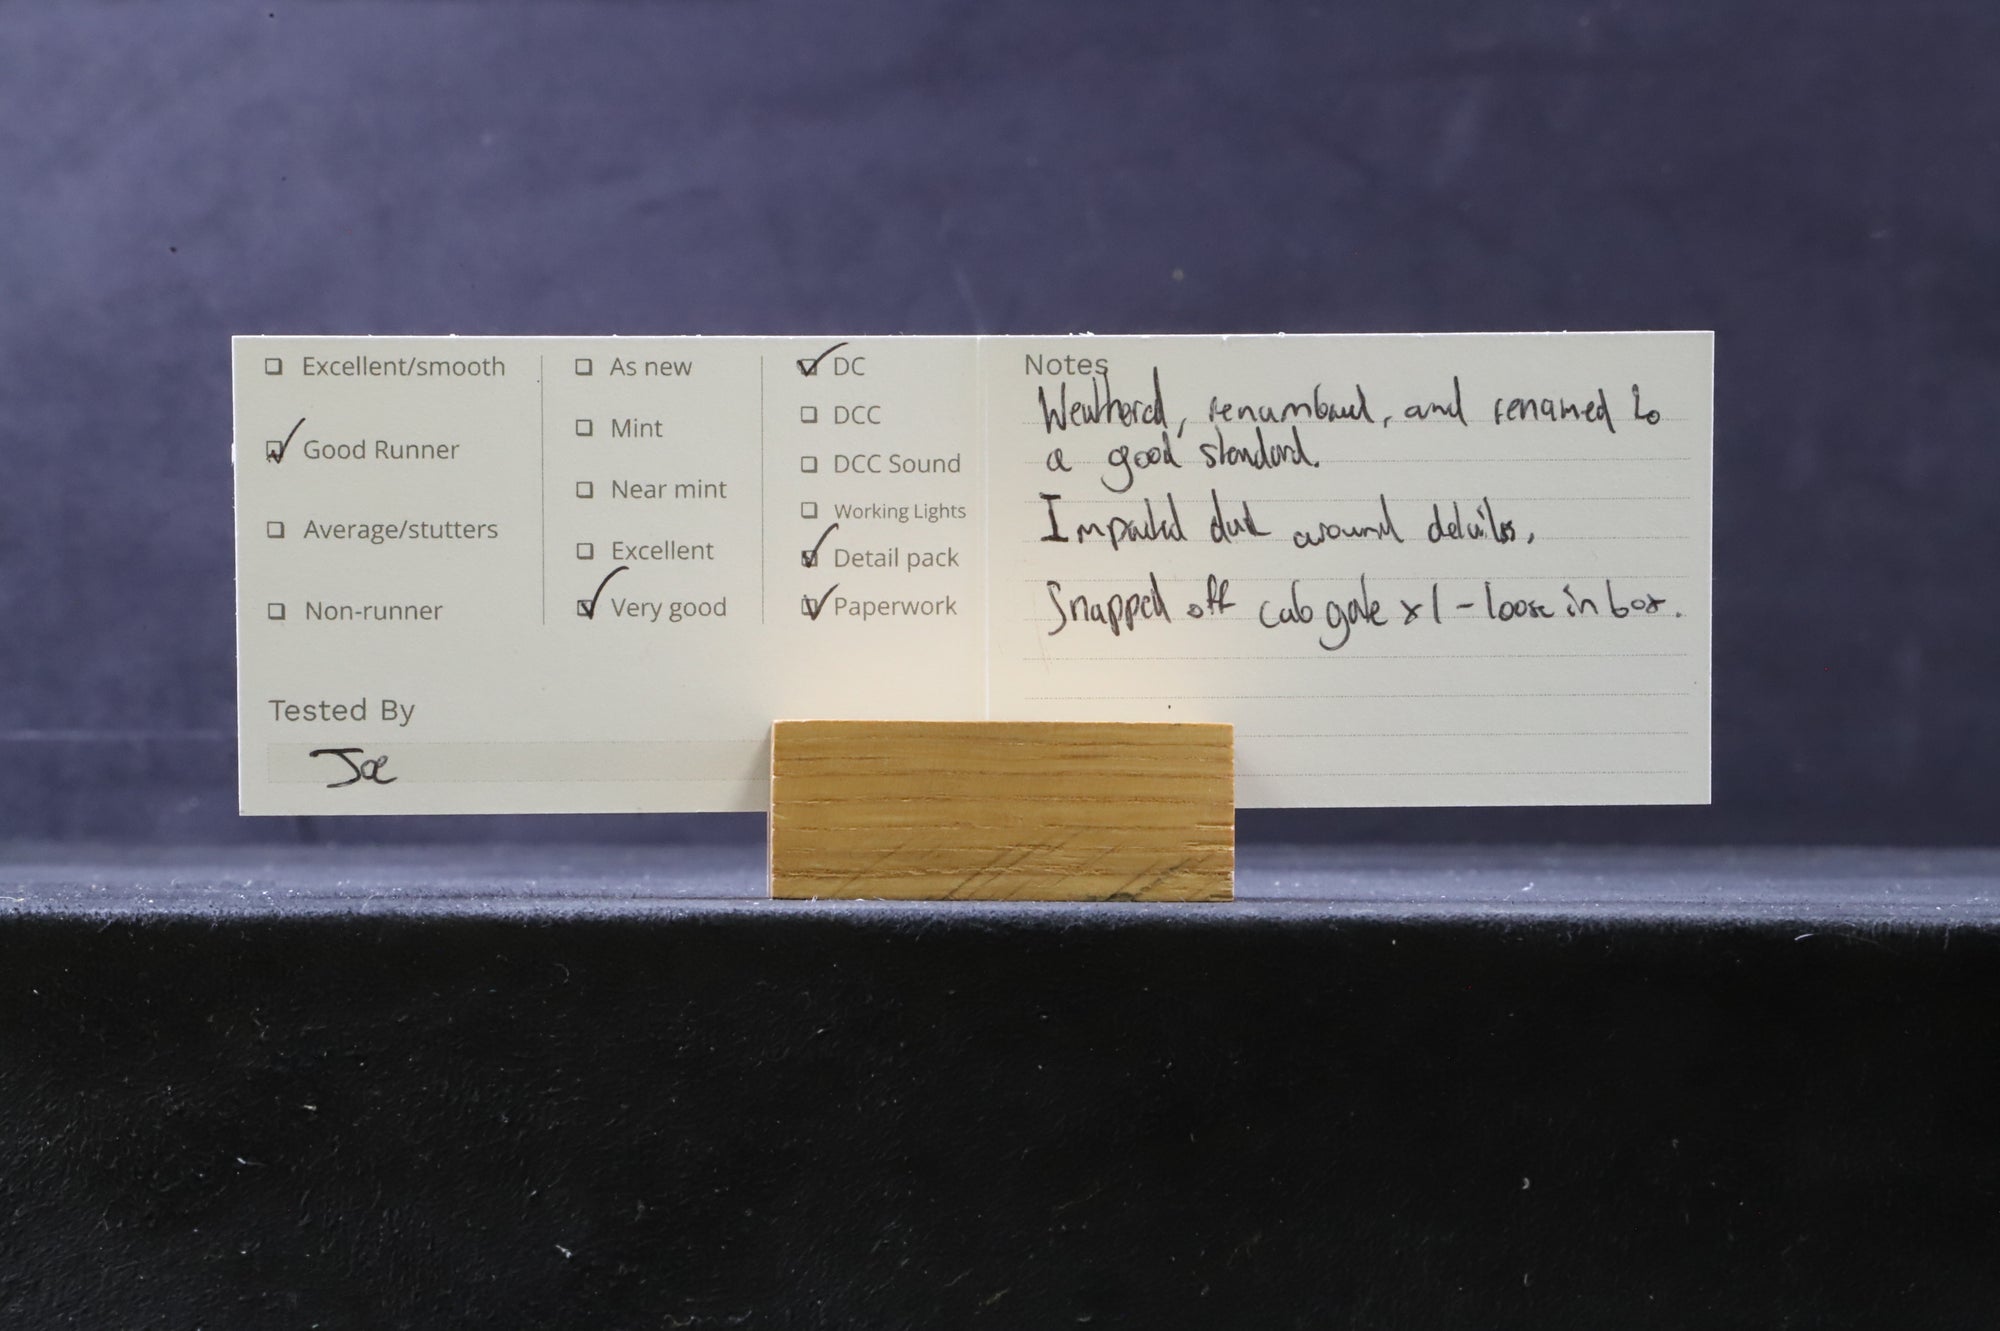 Excellent/smooth
Good Runner
Average/stutters
Non-runner
As new
Mint
Near mint
Excellent
Very good
DC
DCC
DCC Sound
Working Lights
Detail pack
Paperwork
Tested By
Joe
Notes
Weathered, renumbered, and renamed to
a good standard.
Impacted dust around details.
Snapped off cab gate x1 - loose in box.